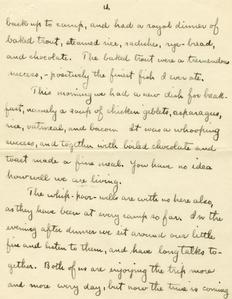 16
back up to camp, and had a royal dinner of
baked trout, steamed rice, radishes, rye-bread,
and chocolate. The baked trout were a tremendous
success, - positively the finest fish I ever ate.
This morning we had a new dish for break-
fast, namely a soup of chicken giblets, asparagus,
rice, oatmeal, and bacon It was a whooping
success, and together with boiled chocolate and
toast made a fine meal. You have no idea
how well we are living.
The whip-poor-wills are with us here also,
as they have been at every camp so far. In the
evening after dinner we sit around our little
fire and listen to them, and have long talks to-
gether. Both of us are enjoying the trip more
and more every day, but now the time is coming